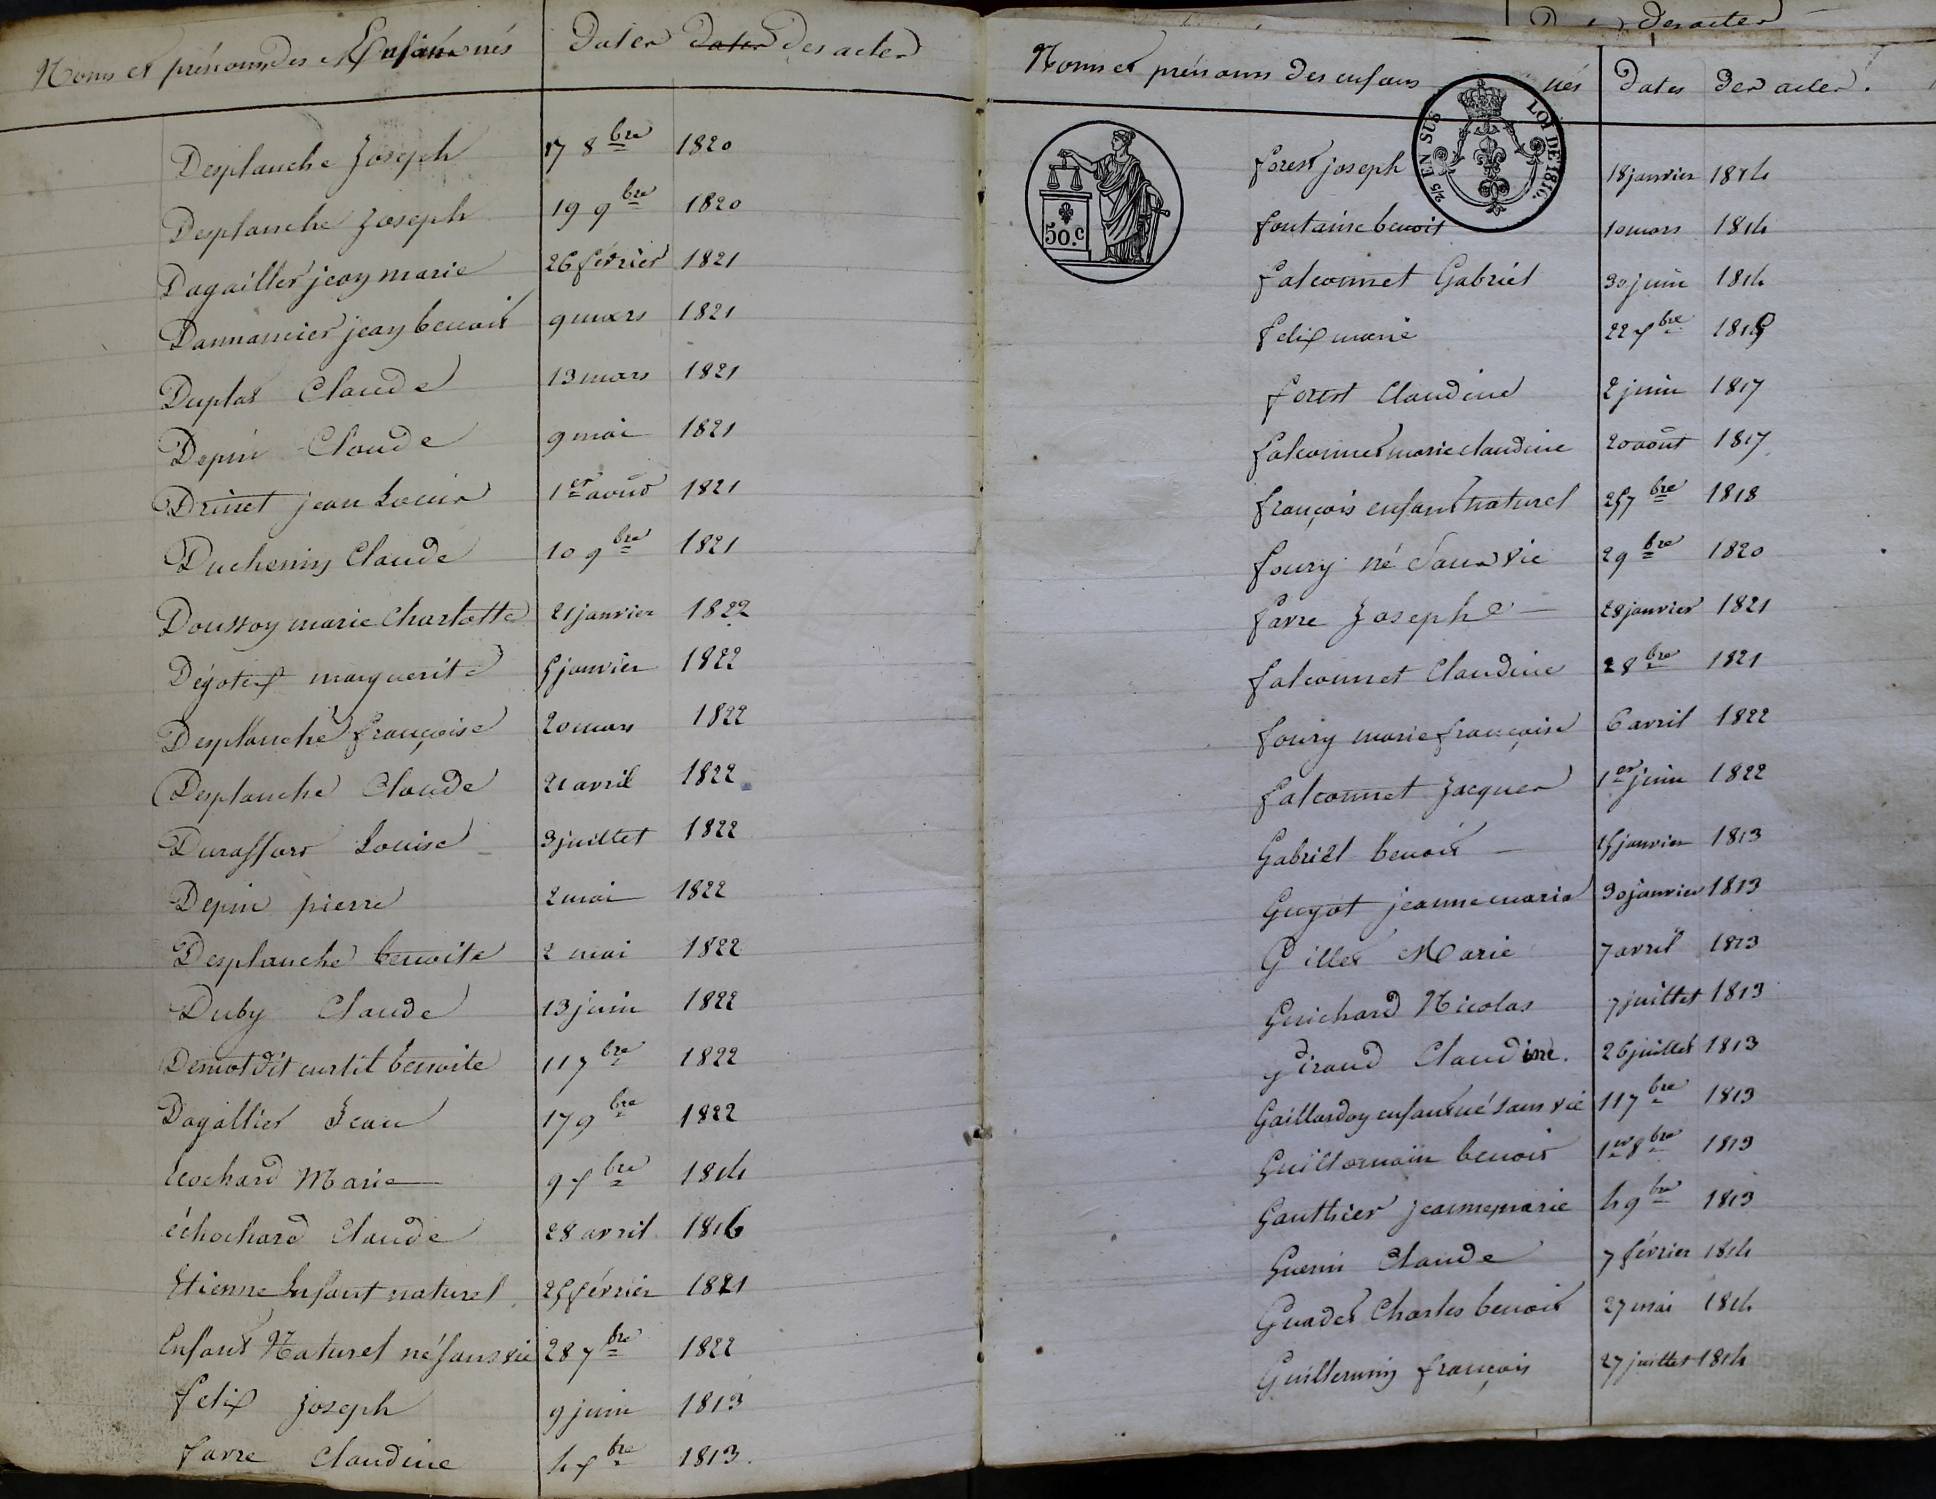 Noms et prénoms des Enfans nés Dates dates des actes
Desplanche Joseph 17 8bre 1820
Desplanche Joseph 19 9bre 1820
Dagaillier jean marie 26 février 1821
Dannancier jean benoit 9 mars 1821
Duplat Claude 13 mars 1821
Depin Claude 9 mai 1821
Drivet jean Louis 1er août 1821
Duchenin Claude 10 9bre 1821
Doussoy marie Charlotte 21 janvier 1822
Dégotex marguerite 5 janvier 1822
Desplanche françoise 20 mars 1822
Desplanche Claude 21 avril 1822
Duraffort Louise 3 juillet 1822
Depin pierre 2 mai 1822
Desplanche benoite 2 mai 1822
Duby Claude 13 juin 1822
Demot dit curtil benoite 11 7bre 1822
Dagallier Jean 17 9bre 1822
Ecochard Marie 9 xbre 1814
échochard Claude 28 avril 1816
Etienne Enfant naturel 25 février 1821
Enfant Naturel né sans vie 28 7bre 1822
felix Joseph 9 juin 1813
favre Claudine 4 xbre 1813
des actes
Noms et prénoms des enfans nés Dates des actes.
2/5 EN SUS LOI DE 1816.
50.c
forest joseph 18 janvier 1814
fontaine benoit 10 mars 1814
falconnet Gabriel 30 juin 1814
felix marie 22 xbre 1815
forest Claudine 2 juin 1817
falconnet marie claudine 20 août 1817
françois enfant naturel 25 7bre 1818
foury né sans vie 2 9bre 1820
favre Josephe 28 janvier 1821
falconnet Claudine 2 8bre 1821
foury marie françoise 6 avril 1822
falconnet Jacques 1er juin 1822
Gabriel benoit 15 janvier 1813
Guyot jeanne marie 30 janvier 1813
Gillet Marie 7 avril 1813
Guichard Nicolas 7 juillet 1813
Giraud Claudine. 26 juillet 1813
Gaillardon enfant né sans vie 11 7bre 1813
Guillermain benoit 1er 8bre 1813
Gauthier jeanne marie 4 9bre 1813
Guerin Claude 7 février 1814
Guadet Charles benoit 27 mai 1814
Guillermin françois 27 juillet 1814